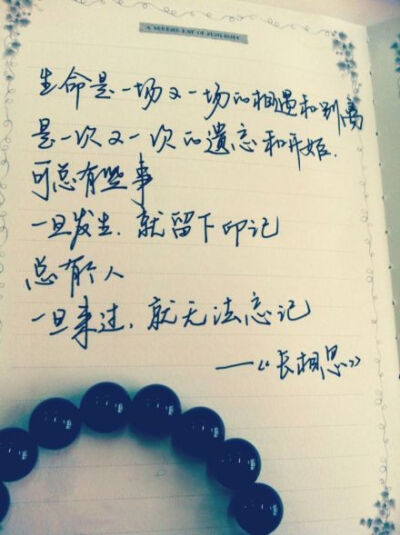 生命是一场又一场的相遇和别离
是一次又一次的遗忘和开始.
可总有些事
一旦发生,就留下印记
总有个人
一旦来过,就无法忘记
——《长相思》